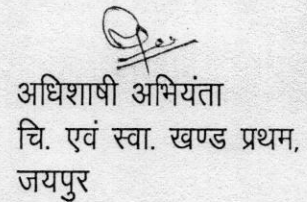 अधिशाषी अभियंता
चि. एवं स्वा. खण्ड प्रथम,
जयपुर